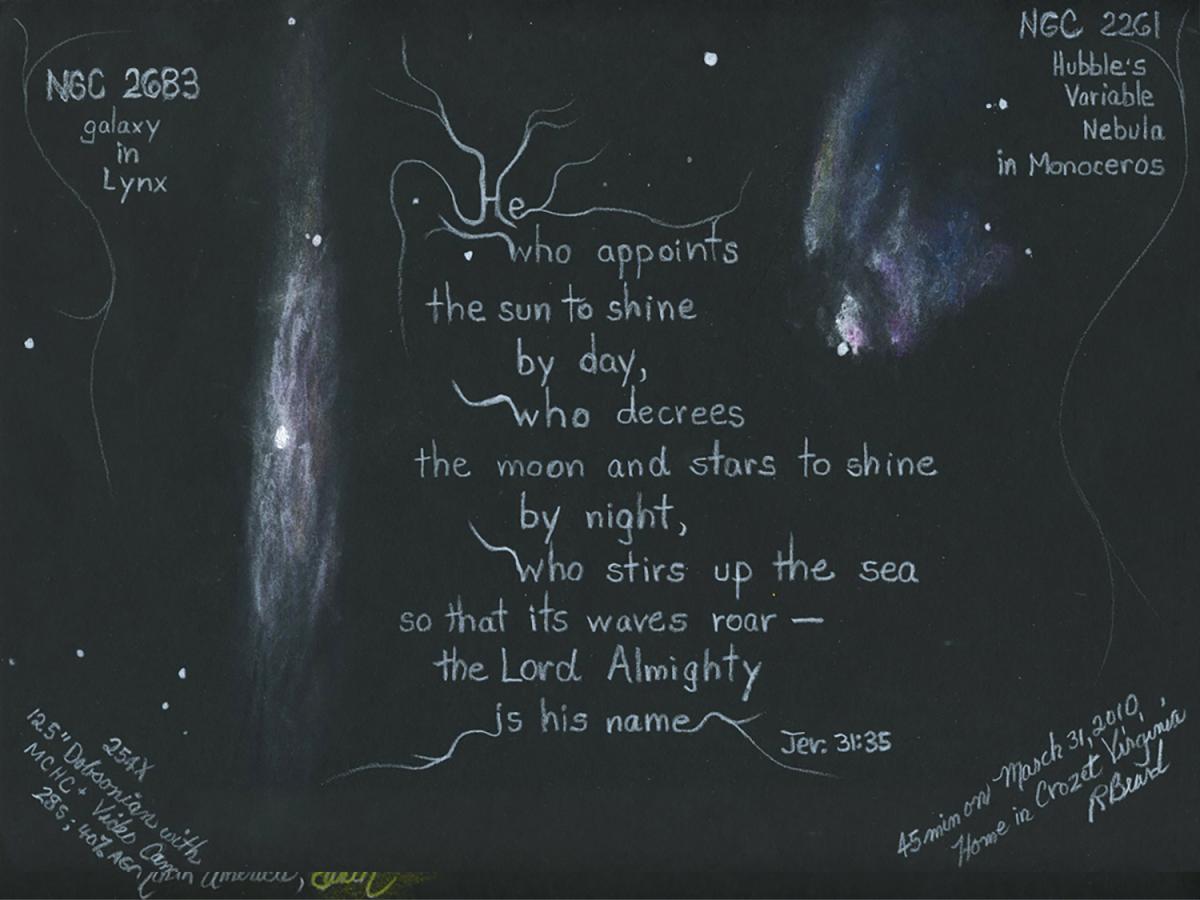 NGC 2683
galaxy
in
Lynx
NGC 2261
Hubble's
Variable
Nebula
in Monoceros
He
who appoints
the sun to shine
by day,
who decrees
the moon and stars to shine
by night,
who stirs up the sea
so that its waves roar —
the Lord Almighty
is his name
Jer. 31:35
254X
12.5" Dobsonian with
MCHC + Video Cam
28s; 40% AGC
in America, Earth
45 min on March 31, 2010,
Home in Crozet Virginia
R Beard